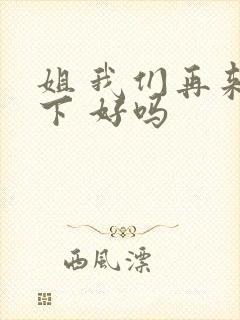 姐我们再来
下好吗
西風漂